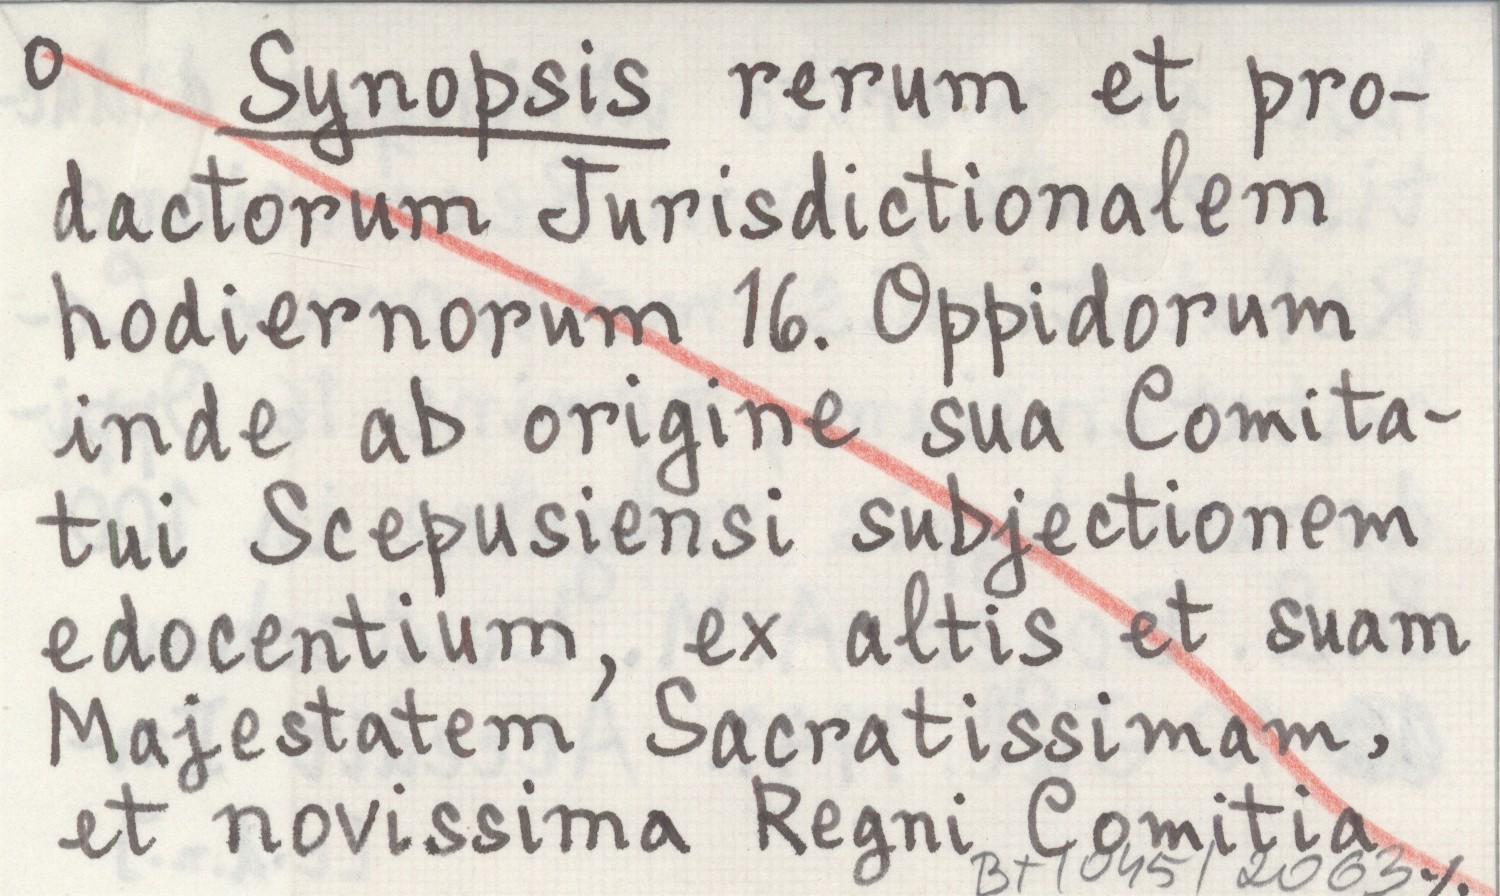 o Synopsis rerum et pro-
dactorum Jurisdictionalem
hodiernorum 16. Oppidorum
inde ab origine sua Comita-
tui Scepusiensi subjectionem
edocentium, ex altis et suam
Majestatem Sacratissimam,
et novissima Regni Comitia
B+1045/2063 %.